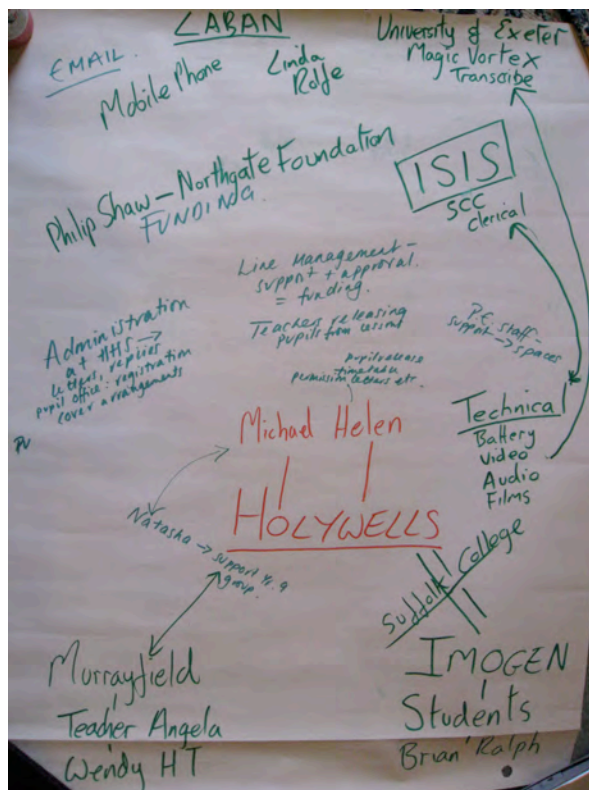 LABAN
EMAIL.
Mobile Phone
Linda
Rolfe
University of Exeter
Magic Vortex
Transcribe
Philip Shaw – Northgate Foundation
FUNDING.
ISIS
SCC
Clerical
Line Management –
support + approval.
= funding.
Teacher releasing
pupils from lessons
Pupil release
timetable
permission letters etr.
Administration
at HHS →
letters, replies
pupil office: registration
cover arrangements
P.E. staff –
support → spaces
Technical
Battery
Video
Audio
Films
Michael Helen
HOLYWELLS
Natasha → support Yr. 9
group.
Suffolk College
Murrayfield
Teacher Angela
Wendy HT
IMOGEN
Students
Brian Ralph